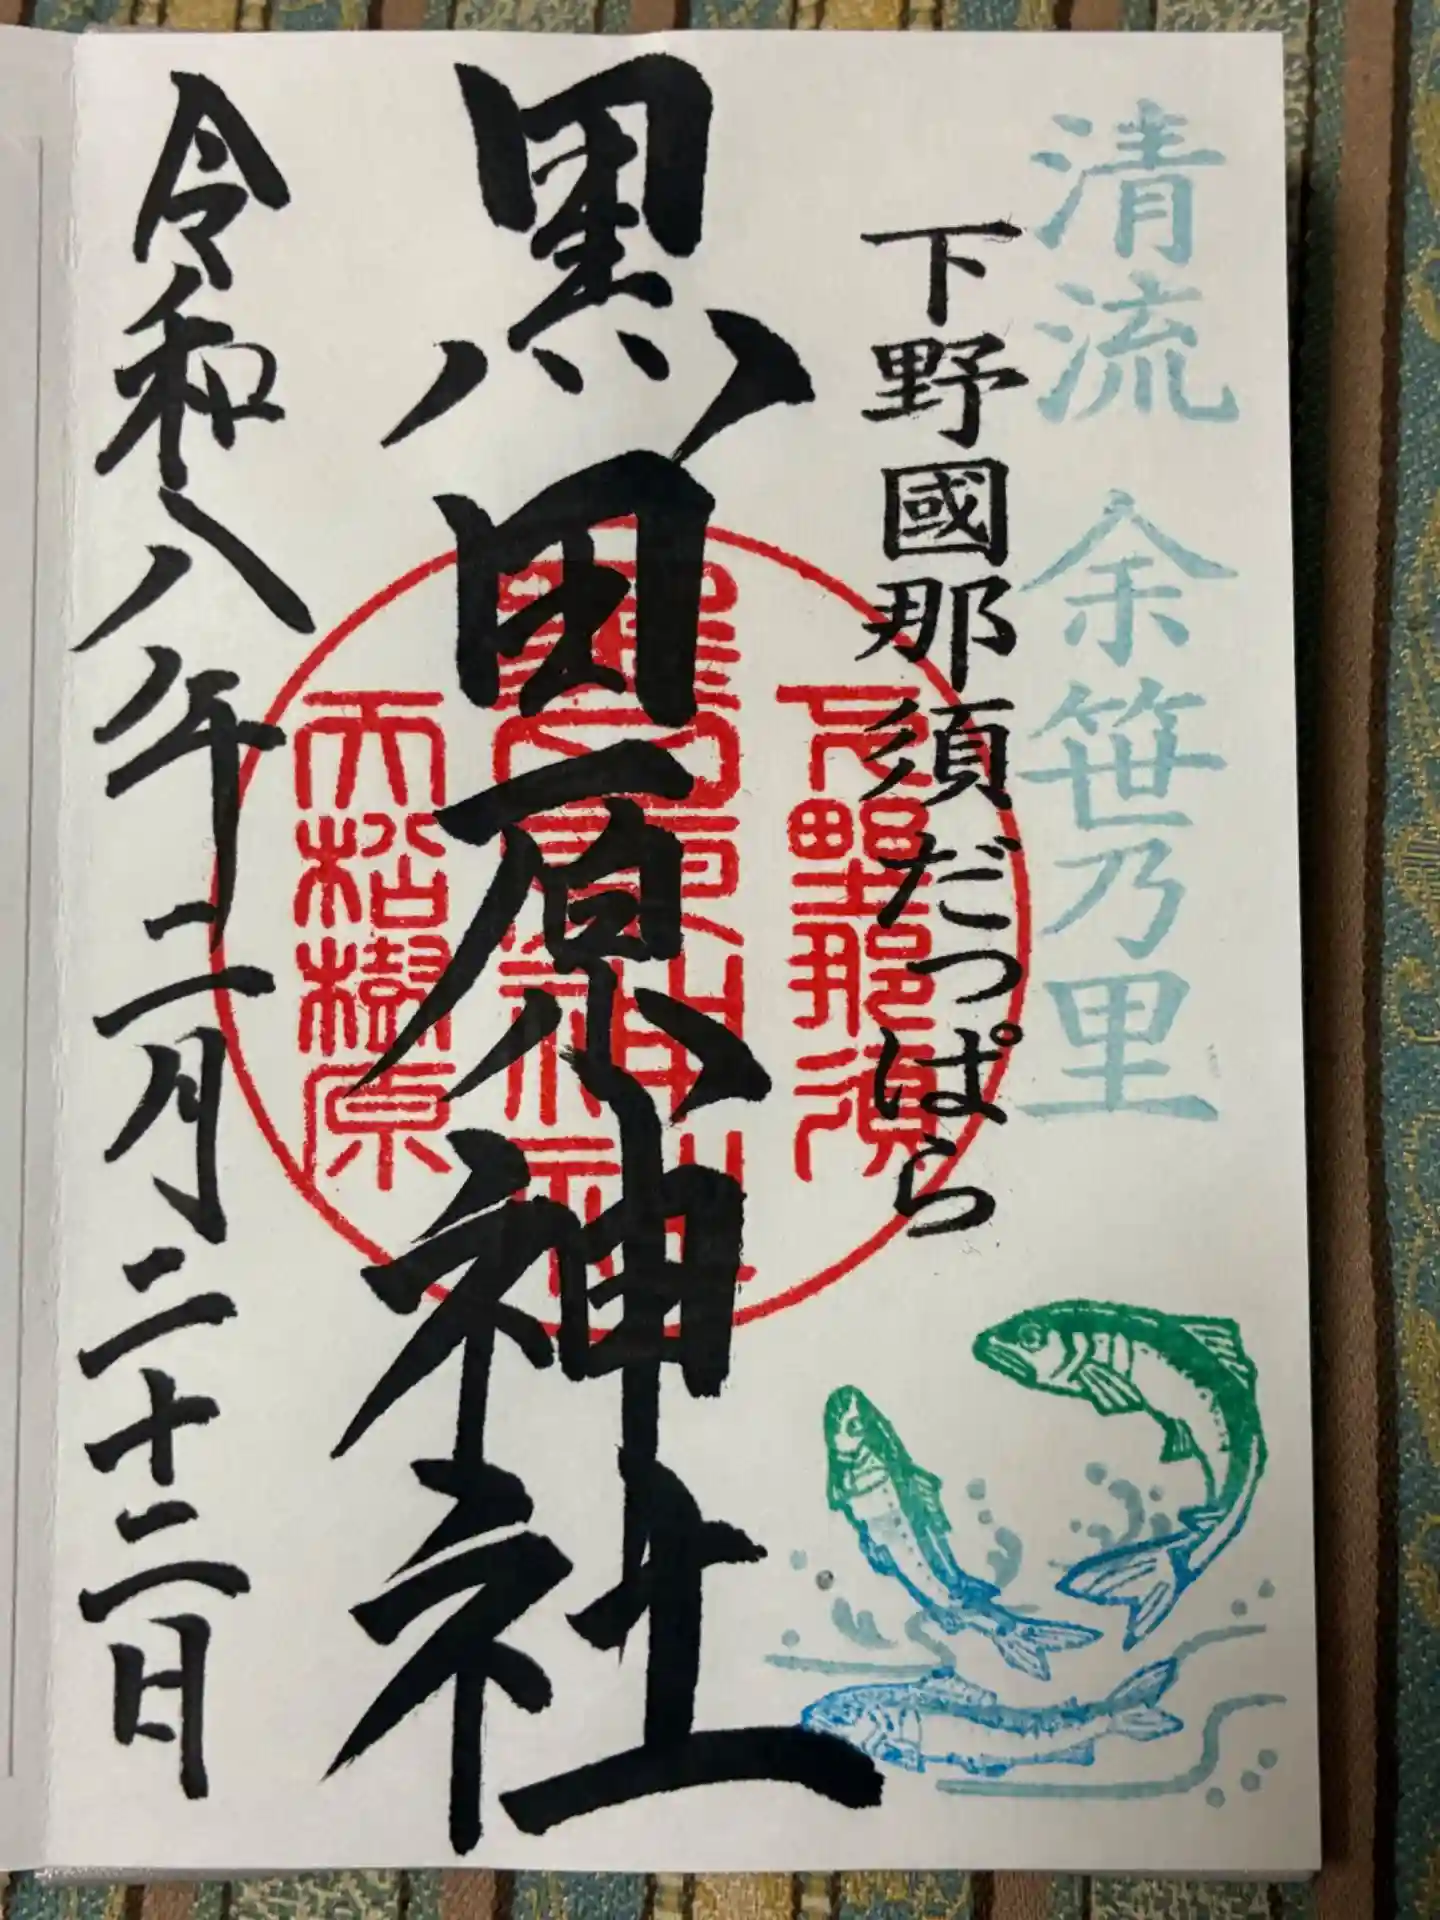 清流 余笹乃里
下野國那須だつぱら
黒田原神社
令和八年二月二十二日
下野那須
黒田原神社
松樹原